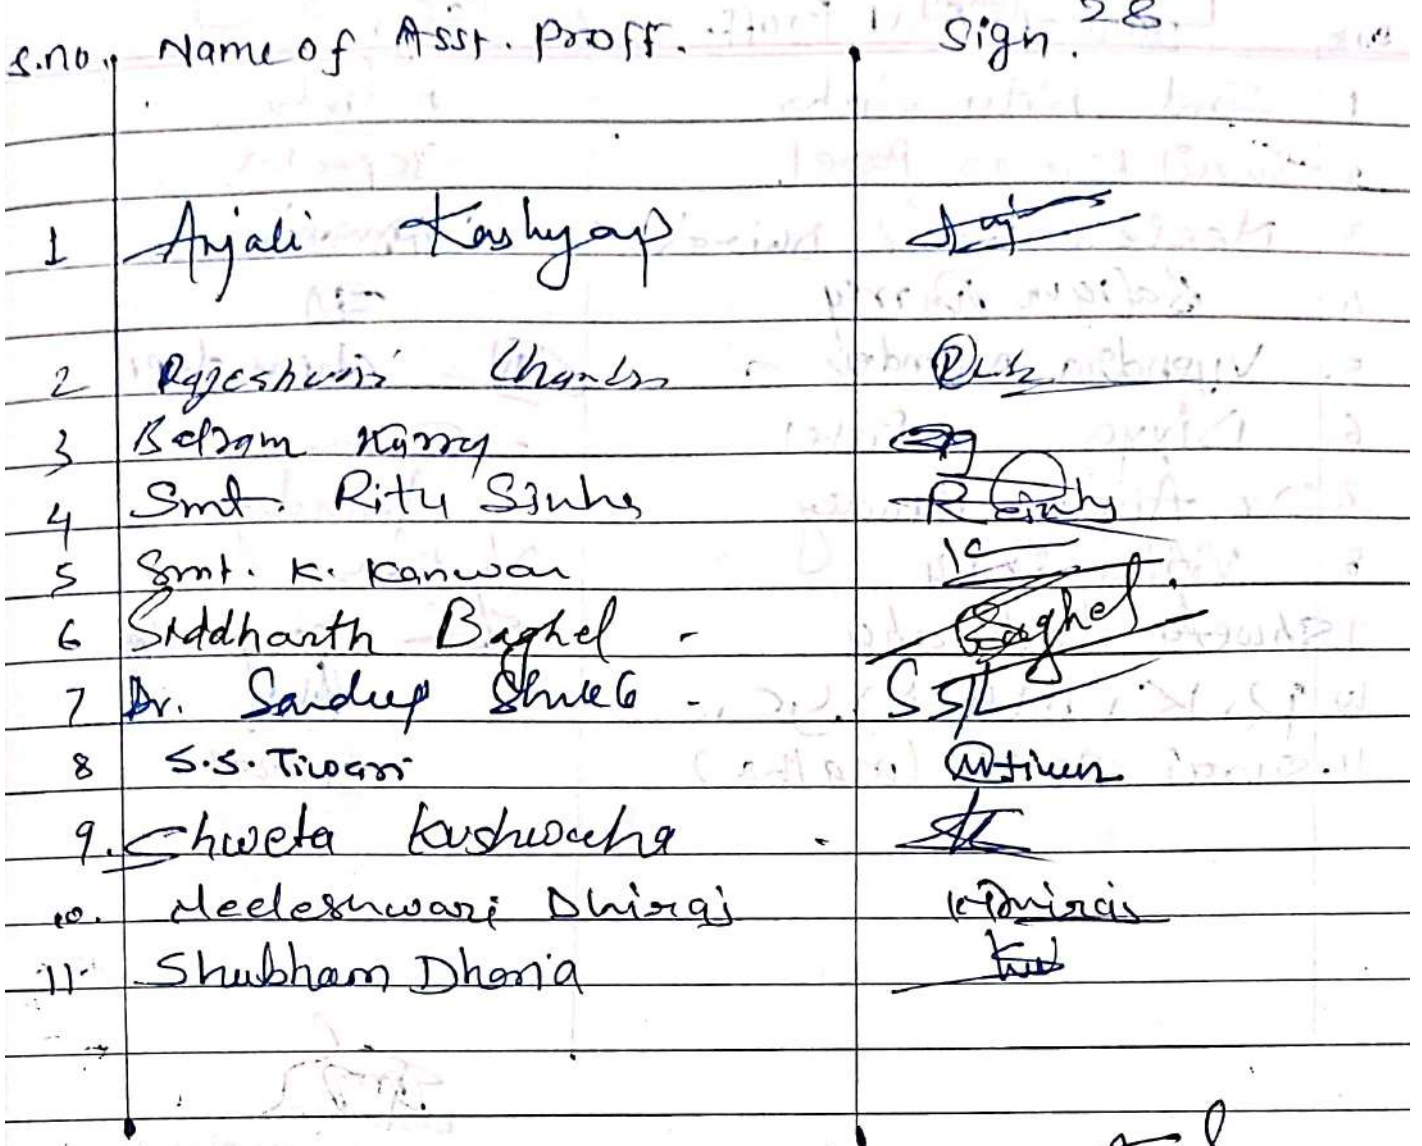 28
S.no. Name of Asst. Proff. Sign.
1 Anjali Kashyap
2 Rajeshwari Chandra
3 Balram Kurrey
4 Smt. Ritu Sinha R Sinha
5 Smt. K. Kanwar K
6 Siddharth Baghel - Baghel
7 Dr. Sandeep -
8 S.S. Tiwari
9. Shweta Kushwaha -
10. Neeleshwari Dhiraj Dhiraj
11 Shubham